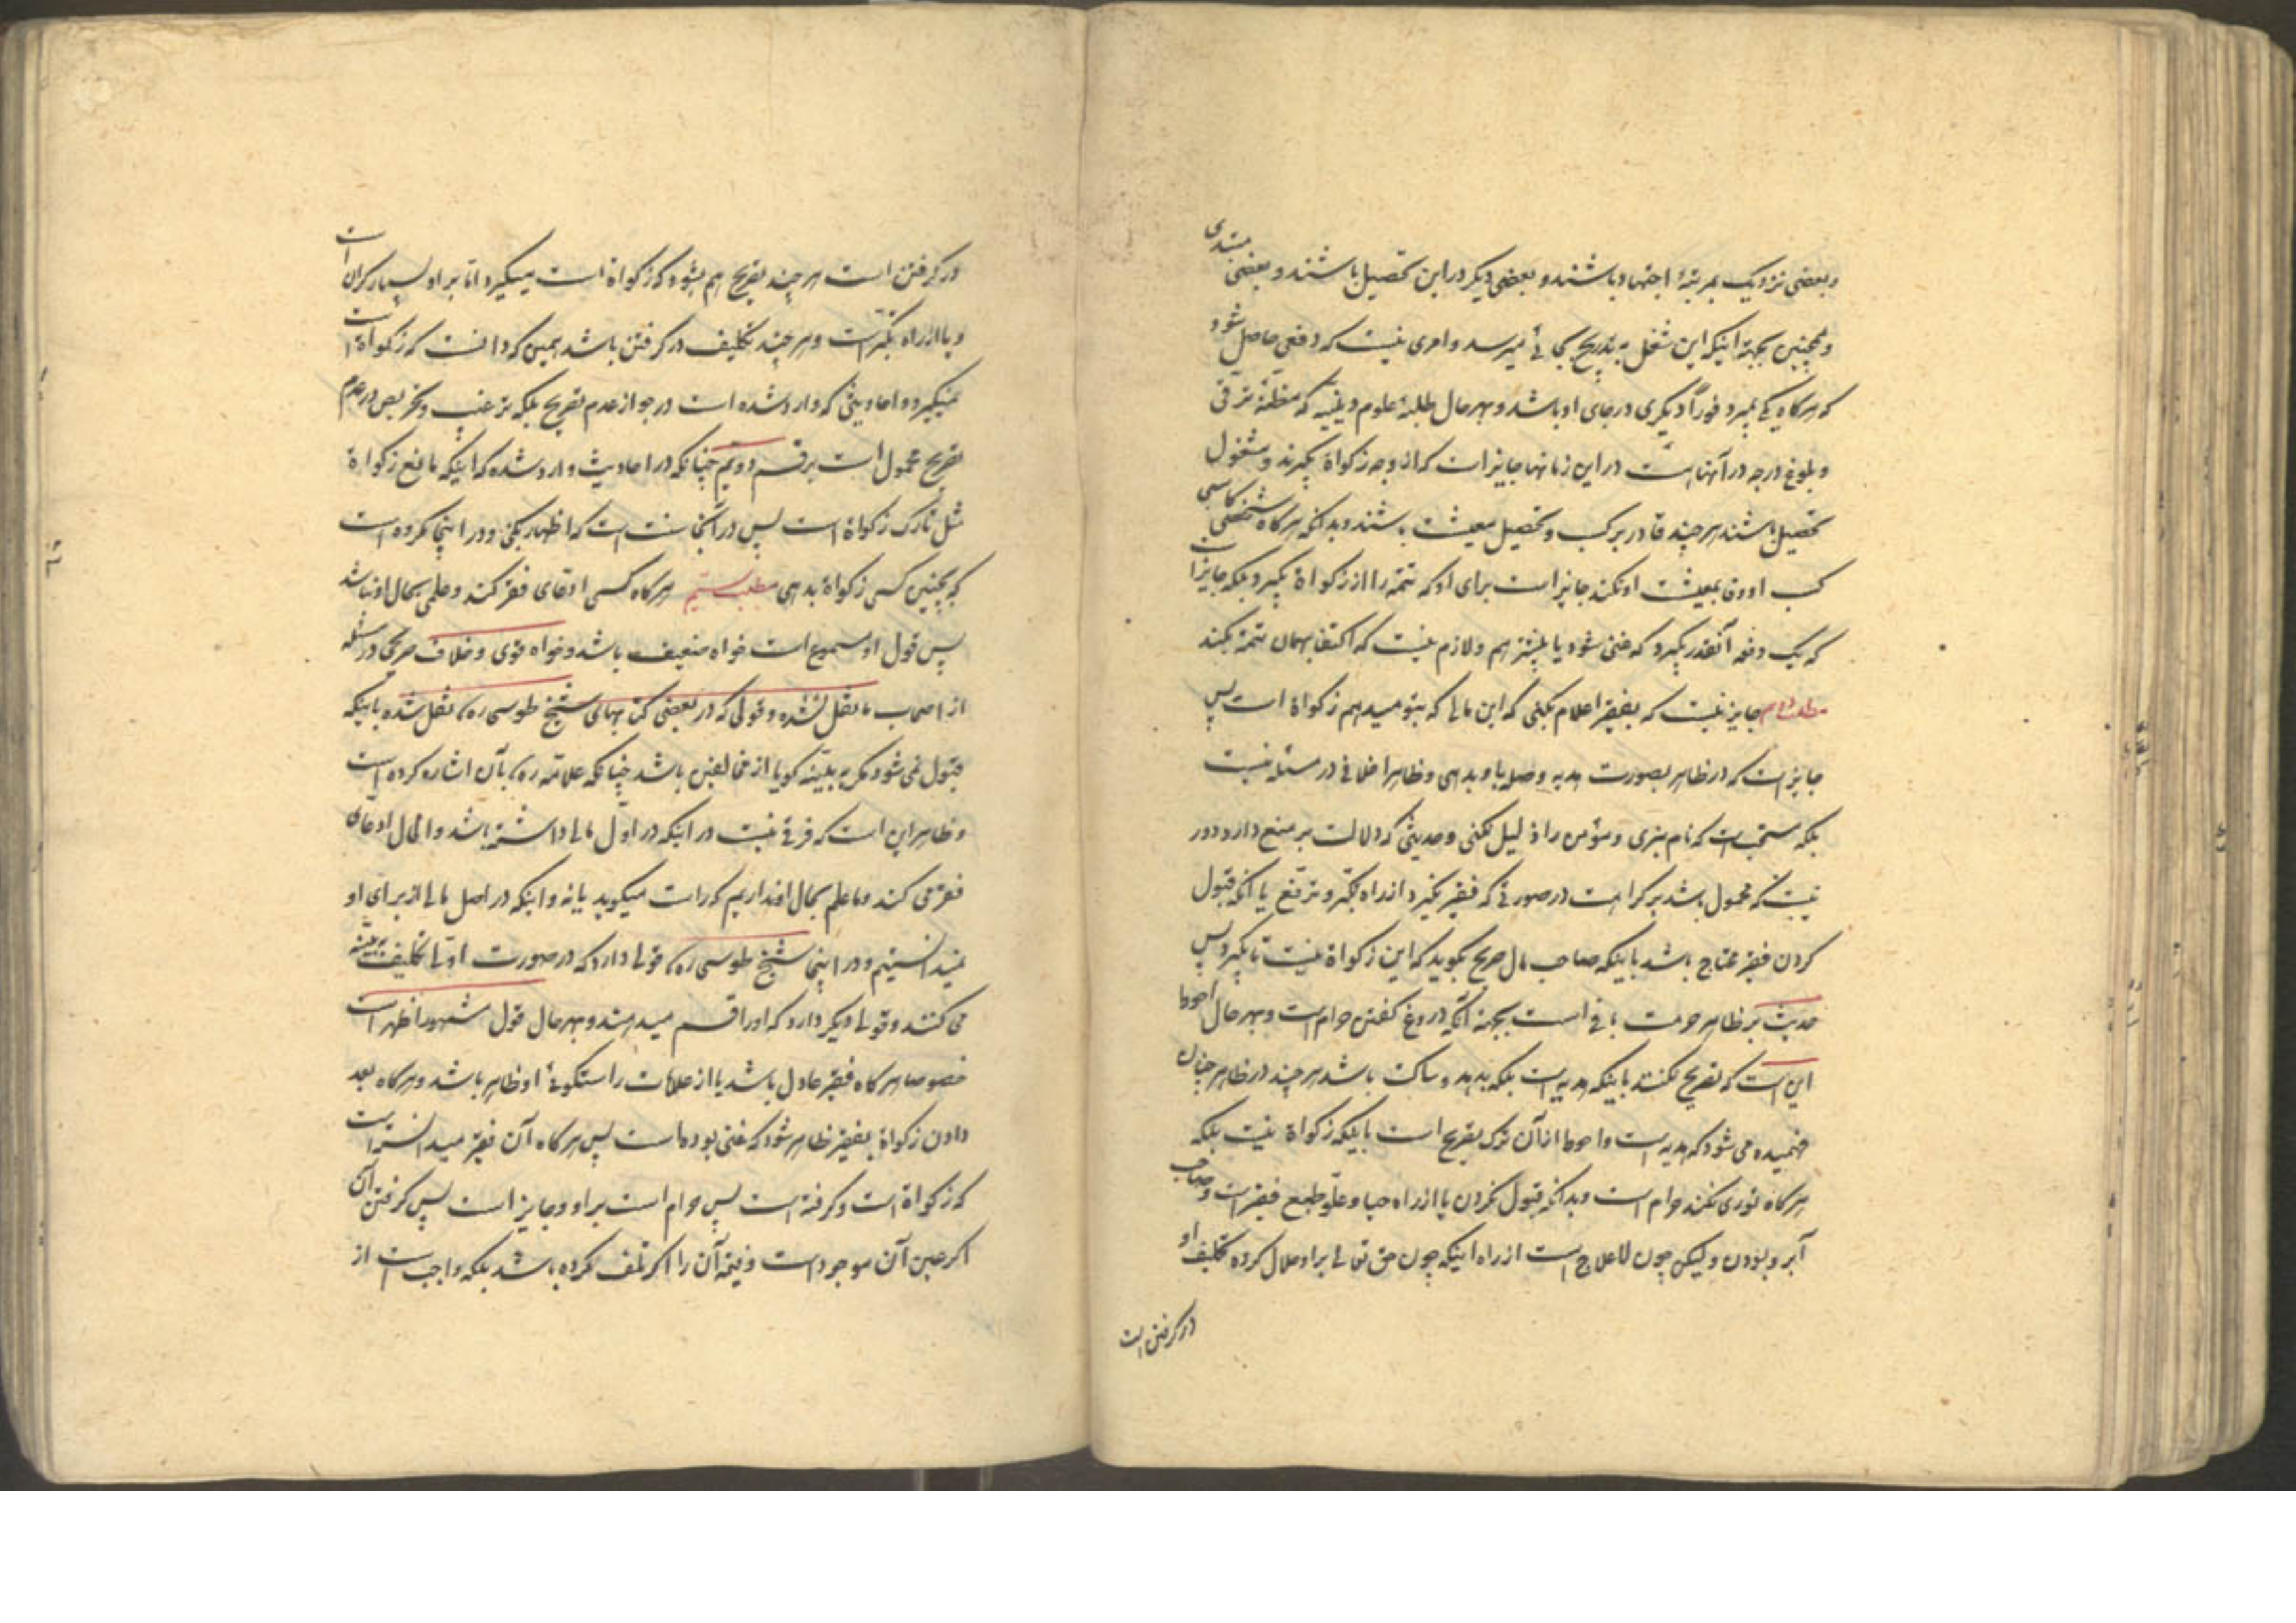 و بعضی نزدیک بمرتبهٔ اجتهاد باشند و بعضی دیگر در این تحصیل باشند و بعضی مبتدی
و همچنین بجهة اینکه این شغل به تدریج بجائی میرسد و امری نیست که دفعی حاصل شود
که هرگاه یکی بمیرد فوراً دیگری در جای او باشد و بهر حال طلبهٔ علوم دینیه که مظنهٔ ترقی
و بلوغ درجه در آنها هست در این زمانها جایز است که از وجه زکواة بگیرند و مشغول
تحصیل باشند هر چند قادر بر کسب و تحصیل معیشت باشند و بدانکه هرگاه شخصی کاسبی
کسب او وفا بمعیشت او نکند جایز است برای او که تتمه را از زکواة بگیرد بلکه جایز است
که یک دفعه آنقدر بگیرد که غنی شود یا بیشتر هم و لازم نیست که اکتفا بهمان تتمه بکند
جایز نیست که بفقیر اعلام بکنی که این مالی که بتو میدهم زکواة است پس
جایز است که در ظاهر بصورت هدیه و صله باو بدهی و ظاهرا خلافی در مسئله نیست
بلکه مستحب است که نام نبری و مؤمن را ذلیل نکنی و حدیثی که دلالت بر منع دارد دور
نیست که محمول باشد بر کراهت در صورتی که فقیر نگیرد از راه تکبر و ترفع یا آنکه قبول
کردن فقیر محتاج باشد باینکه صاحب مال صریح بگوید که این زکواة نیست تا بگیرد پس
حدیث بر ظاهر حرمت باقی است بجهة آنکه دروغ گفتن حرام است و بهر حال احوط
این است که تصریح نکنند باینکه هدیه است بلکه بدهد و ساکت باشد هر چند در ظاهر چنان
فهمیده می شود که هدیه است و احوط از آن ترک تصریح است باینکه زکواة نیست بلکه
هرگاه توری نکند حرام است و بدانکه قبول نکردن یا از راه حیا و علو طبع فقیر است و صاحب
آبرو بودن ولیکن چون لاعلاج است از راه اینکه چون حق تعالی بر او حلال کرده تکلیف او
در گرفتن است
در گرفتن است هر چند تصریح هم بشود که زکواة است میگیرد اما بر او بسیار گران است
و یا از راه تکبر است و هر چند تکلیف در گرفتن باشد همین که دانست که زکواة است
نمیگیرد و احادیثی که وارد شده است در جواز عدم تصریح بلکه ترغیب و تحریص در عدم
تصریح محمول است بر قسم دویم چنانکه در احادیث وارد شده که اینکه مانع زکواة
مثل تارک زکواة است پس در آنجا سنت است که اظهار بکنی و در اینجا مکروه است
که بچنین کسی زکواة بدهی مطلب بیستم هرگاه کسی ادعای فقر کند و علمی بحال او نباشد
پس قول او مسموع است خواه ضعیف باشد و خواه قوی و خلاف صریحی در مسئله
از اصحاب ما نقل نشده و قولی که در بعضی کتابهای شیخ طوسی ره نقل شده باینکه
قبول نمی شود مگر به بینه گویا از مخالفین باشد چنانکه علامه ره بآن اشاره کرده است
و ظاهر این است که فرقی نیست در اینکه در اول مالی داشته باشد و الحال ادعای
فقر می کند و ما علم بحال او نداریم که راست میگوید یا نه و اینکه در اصل مالی از برای او
نمیدانستیم و در اینجا شیخ طوسی ره قولی دارد که در صورت اولی تکلیف به بینه
می کنند و قولی دیگر دارد که او را قسم میدهند و بهر حال قول مشهور اظهر است
خصوصا هرگاه فقیر عادل باشد یا از علامات راستگوئی او ظاهر باشد و هرگاه بعد
دادن زکواة بفقیر ظاهر شود که غنی بوده است پس هرگاه آن فقیر میدانسته است
که زکواة است و گرفته است پس حرام است بر او و جایز است پس گرفتن آن
اگر عین آن موجود است و قیمة آن را اگر تلف کرده باشد بلکه واجب است از